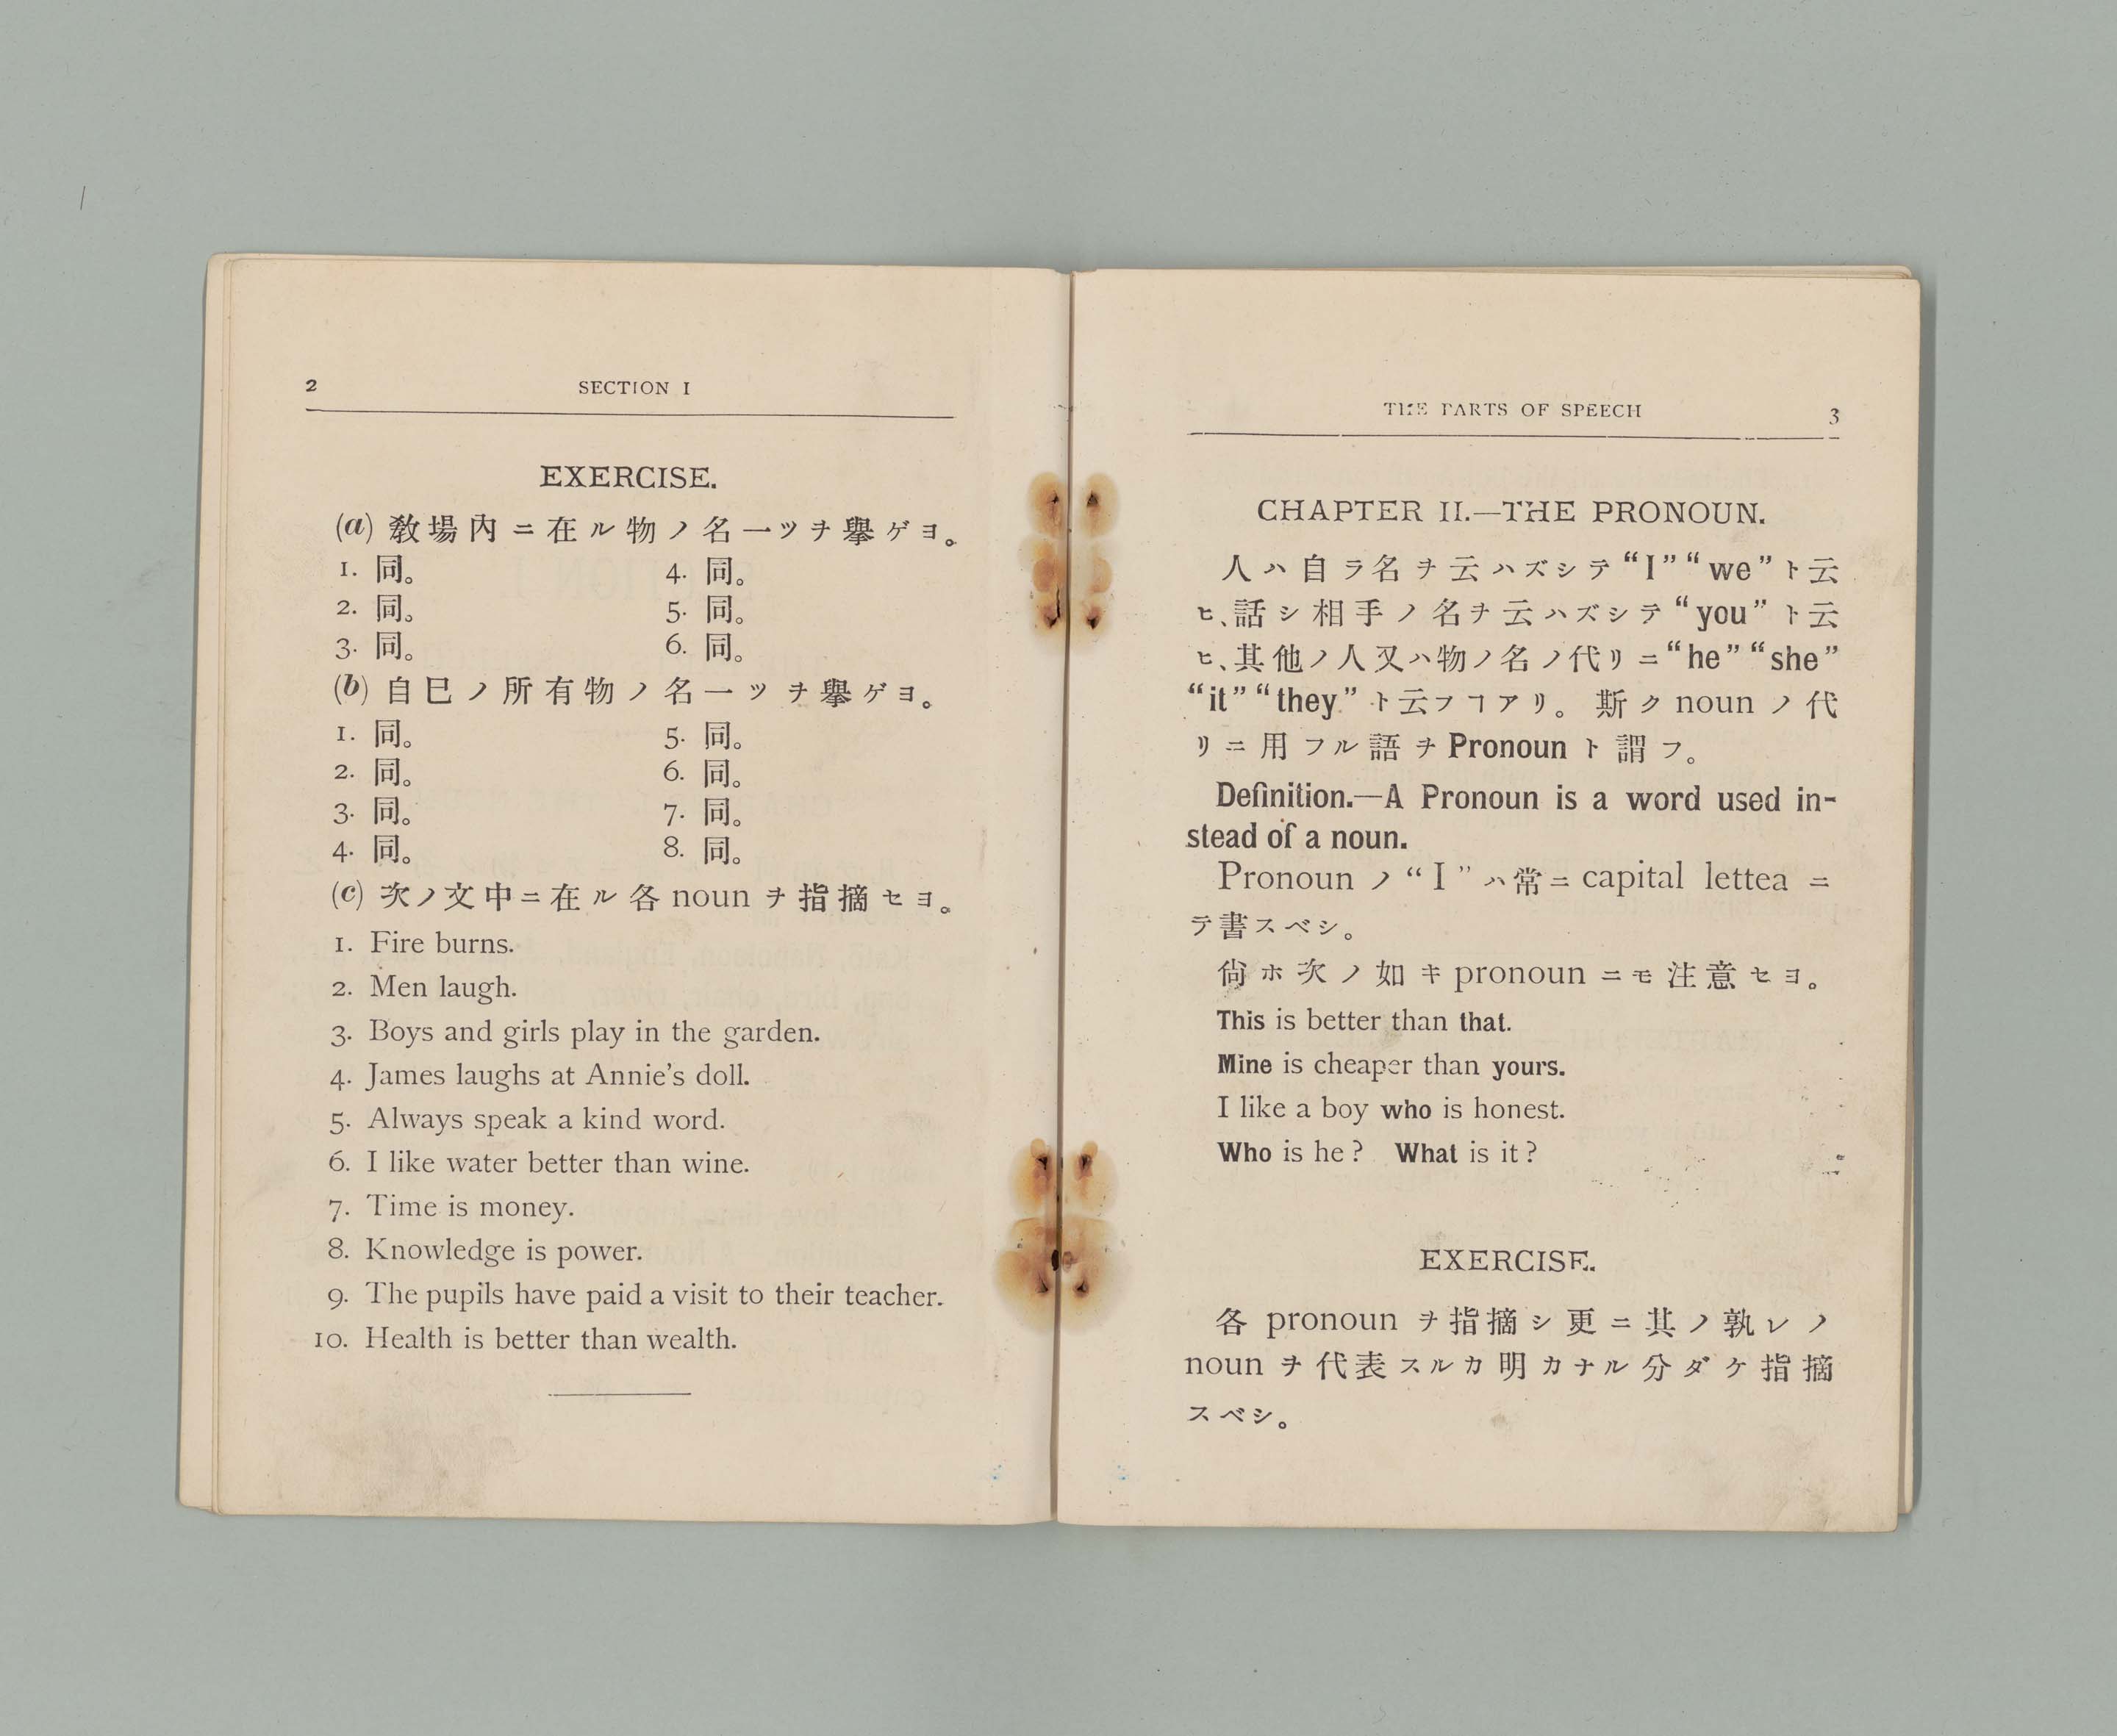 2 SECTION I
EXERCISE.
(a) 敎場內ニ在ル物ノ名一ツヲ擧ゲヨ。
1. 同。 4. 同。
2. 同。 5. 同。
3. 同。 6. 同。
(b) 自巳ノ所有物ノ名一ツヲ擧ゲヨ。
1. 同。 5. 同。
2. 同。 6. 同。
3. 同。 7. 同。
4. 同。 8. 同。
(c) 次ノ文中ニ在ル各 noun ヲ指摘セヨ。
1. Fire burns.
2. Men laugh.
3. Boys and girls play in the garden.
4. James laughs at Annie's doll.
5. Always speak a kind word.
6. I like water better than wine.
7. Time is money.
8. Knowledge is power.
9. The pupils have paid a visit to their teacher.
10. Health is better than wealth.
THE PARTS OF SPEECH 3
CHAPTER II.—THE PRONOUN.
人ハ自ラ名ヲ云ハズシテ “I” “we” ト云
ヒ、話シ相手ノ名ヲ云ハズシテ “you” ト云
ヒ、其他ノ人又ハ物ノ名ノ代リニ “he” “she”
“it” “they” ト云フヿアリ。 斯ク noun ノ代
リニ用フル語ヲ Pronoun ト謂フ。
Definition.—A Pronoun is a word used in-
stead of a noun.
Pronoun ノ “I” ハ常ニ capital lettea ニ
テ書スベシ。
尙ホ次ノ如キ pronoun ニモ注意セヨ。
This is better than that.
Mine is cheaper than yours.
I like a boy who is honest.
Who is he? What is it?
EXERCISE.
各 pronoun ヲ指摘シ更ニ其ノ孰レノ
noun ヲ代表スルカ明カナル分ダケ指摘
スベシ。